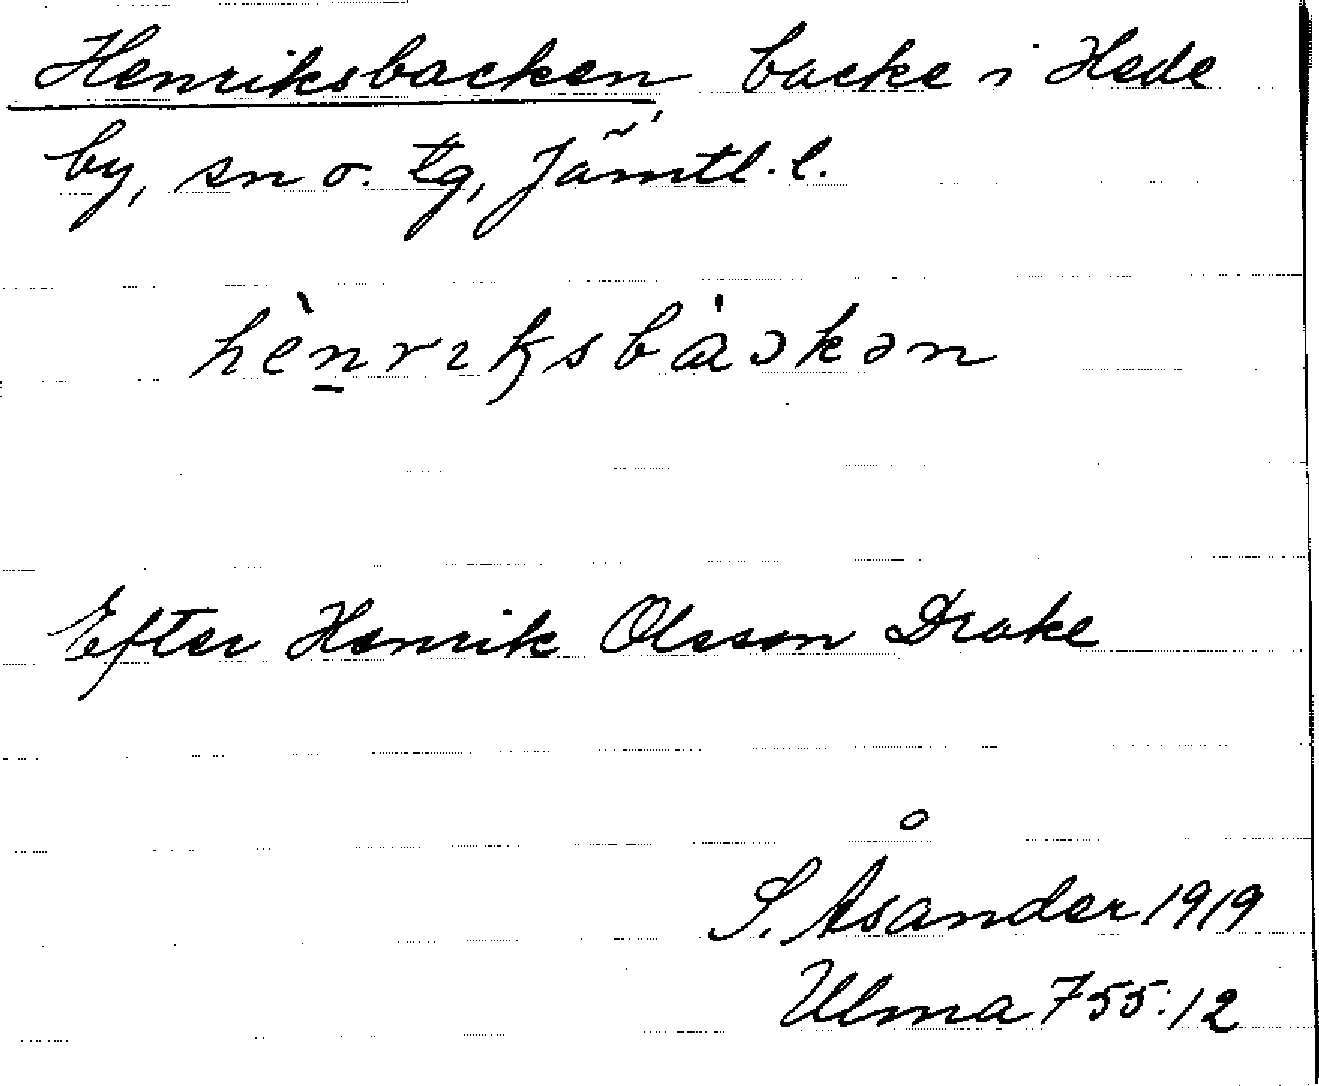 Henriksbacken, backe i Hede
by, sn o. tg, Jämtl. l.
hènrıksbàəkən
Efter Henrik Olsson Drake
S. Åsander 1919
Ulma 755:12